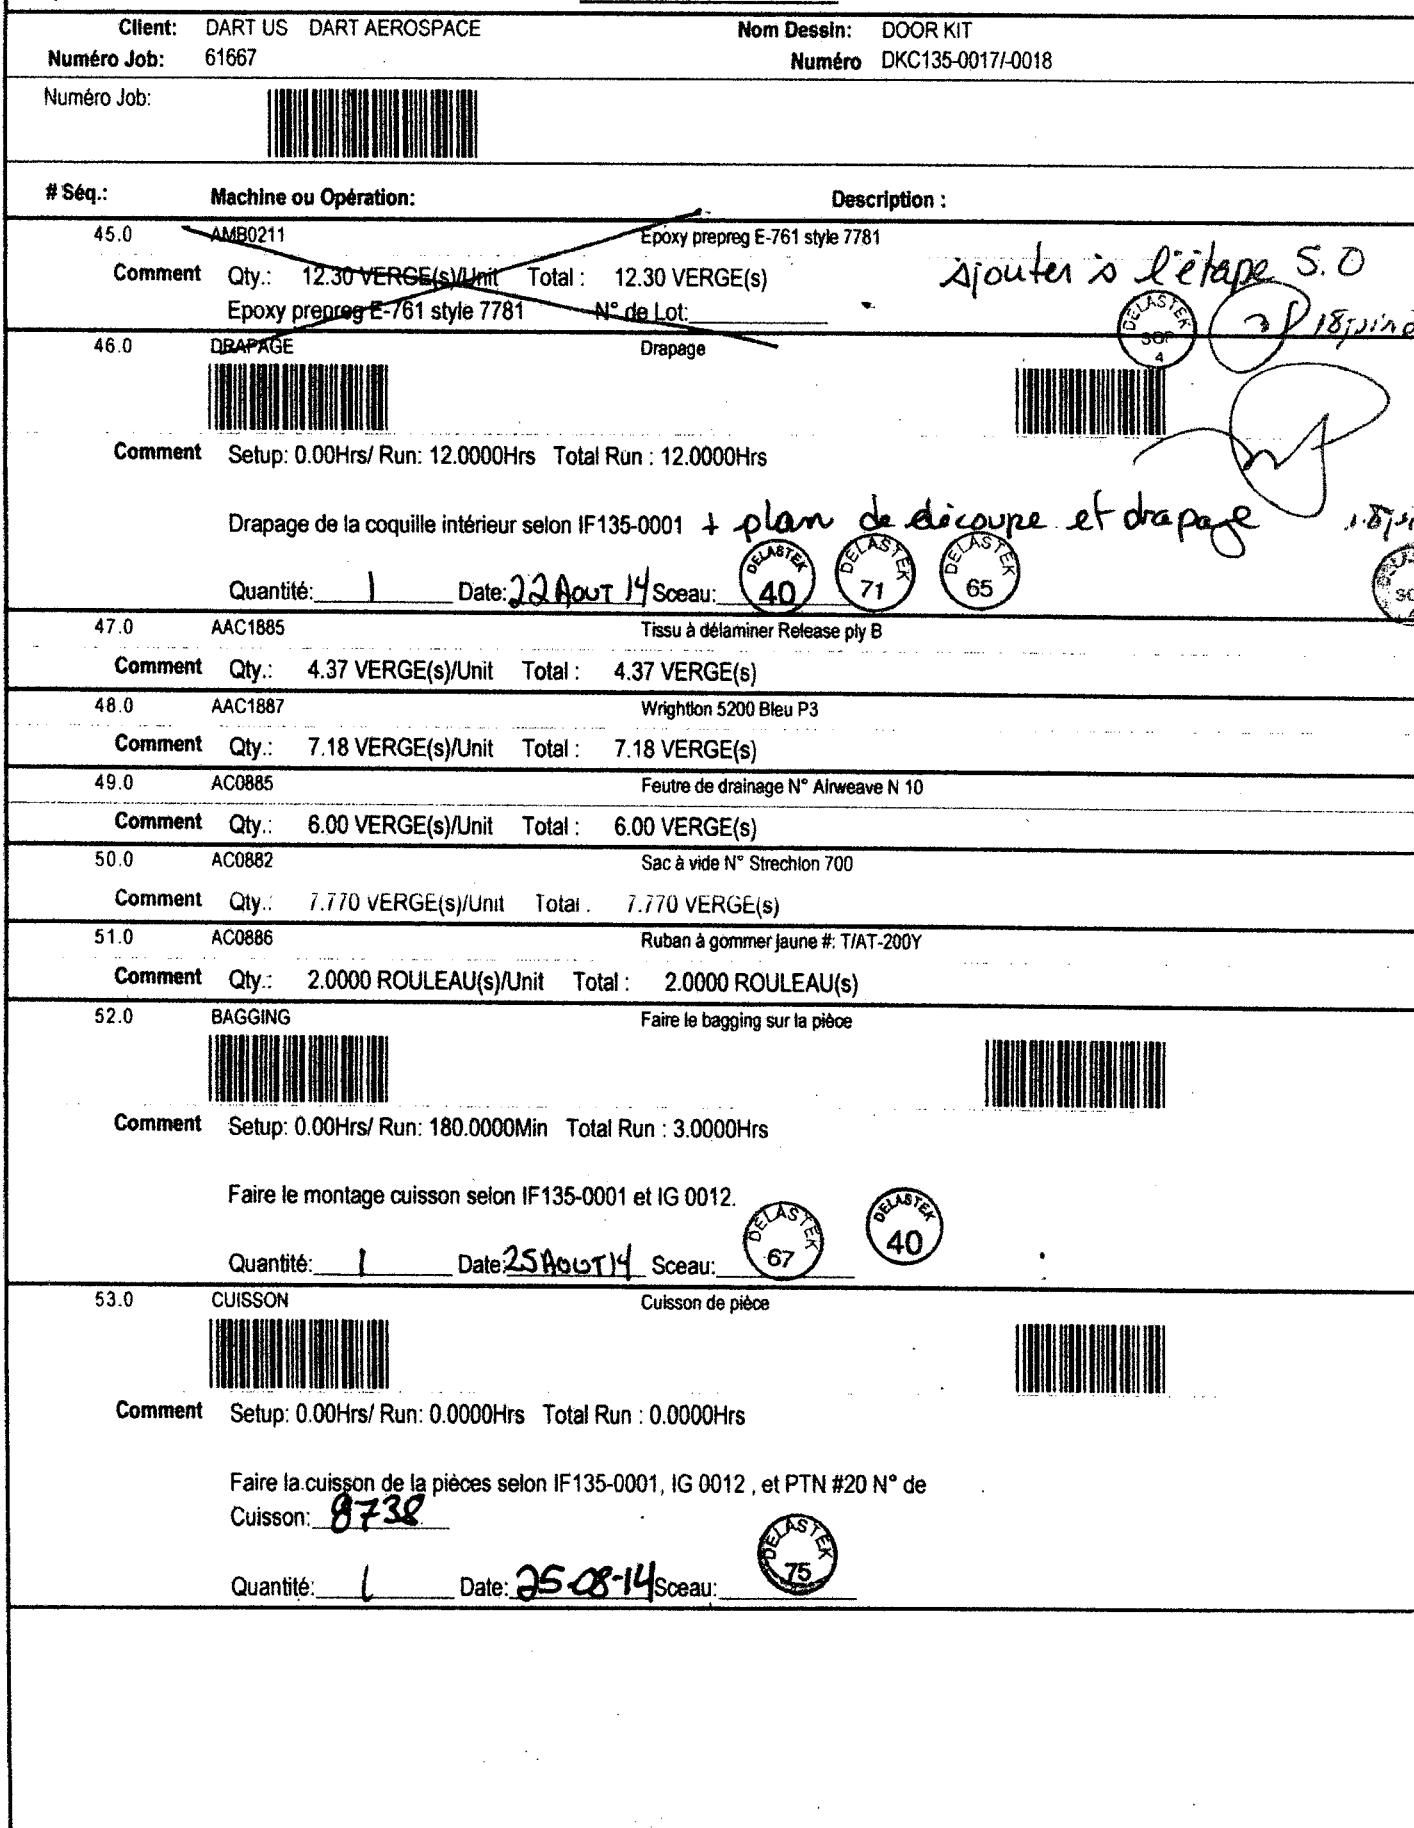 Client: DART US DART AEROSPACE Nom Dessin: DOOR KIT
Numéro Job: 61667 Numéro DKC135-0017/-0018
Numéro Job:
# Séq.: Machine ou Opération: Description :
45.0 AMB0211 Epoxy prepreg E-761 style 7781
Comment Qty.: 12.30 VERGE(s)/Unit Total : 12.30 VERGE(s) ajouter à l'étape 5.0
Epoxy prepreg E-761 style 7781 N° de Lot: DELASTEK 4 18 juin
46.0 DRAPAGE Drapage
Comment Setup: 0.00Hrs/ Run: 12.0000Hrs Total Run : 12.0000Hrs
Drapage de la coquille intérieur selon IF135-0001 + plan de découpe et drapage
Quantité: 1 Date: 22 Aout 14 Sceau: DELASTEK 40 DELASTEK 71 DELASTEK 65
47.0 AAC1885 Tissu à délaminer Release ply B
Comment Qty.: 4.37 VERGE(s)/Unit Total : 4.37 VERGE(s)
48.0 AAC1887 Wrightlon 5200 Bleu P3
Comment Qty.: 7.18 VERGE(s)/Unit Total : 7.18 VERGE(s)
49.0 AC0885 Feutre de drainage N° Airweave N 10
Comment Qty.: 6.00 VERGE(s)/Unit Total : 6.00 VERGE(s)
50.0 AC0882 Sac à vide N° Strechlon 700
Comment Qty.: 7.770 VERGE(s)/Unit Total : 7.770 VERGE(s)
51.0 AC0886 Ruban à gommer jaune #: T/AT-200Y
Comment Qty.: 2.0000 ROULEAU(s)/Unit Total : 2.0000 ROULEAU(s)
52.0 BAGGING Faire le bagging sur la pièce
Comment Setup: 0.00Hrs/ Run: 180.0000Min Total Run : 3.0000Hrs
Faire le montage cuisson selon IF135-0001 et IG 0012.
Quantité: 1 Date: 25 AOUT 14 Sceau: DELASTEK 67 DELASTEK 40
53.0 CUISSON Cuisson de pièce
Comment Setup: 0.00Hrs/ Run: 0.0000Hrs Total Run : 0.0000Hrs
Faire la cuisson de la pièces selon IF135-0001, IG 0012 , et PTN #20 N° de
Cuisson: 8738
Quantité: 1 Date: 25-08-14 Sceau: DELASTEK 75